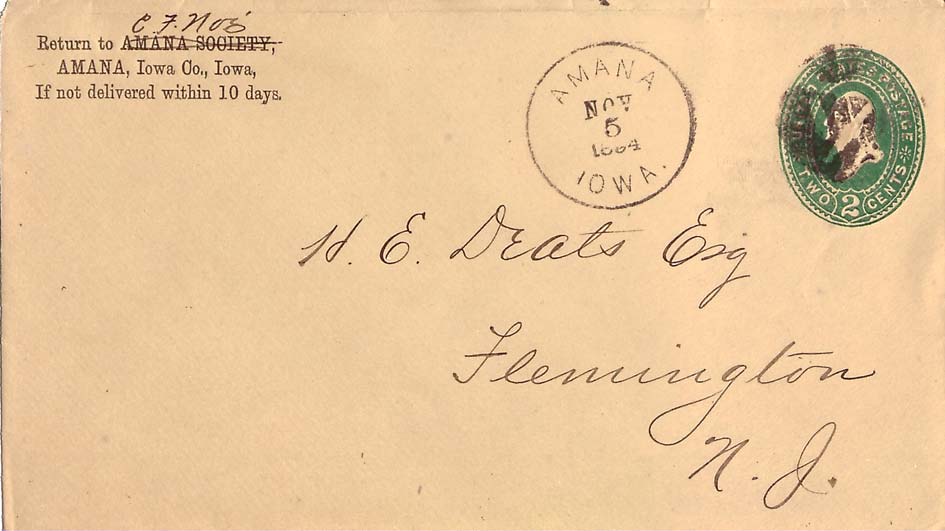 C. F. Noé
Return to AMANA SOCIETY,
AMANA, Iowa Co., Iowa,
If not delivered within 10 days.
AMANA
NOV
5
1884
IOWA.
POSTAGE
TWO 2 CENTS
H. E. Deats Esq
Flemington
N. J.